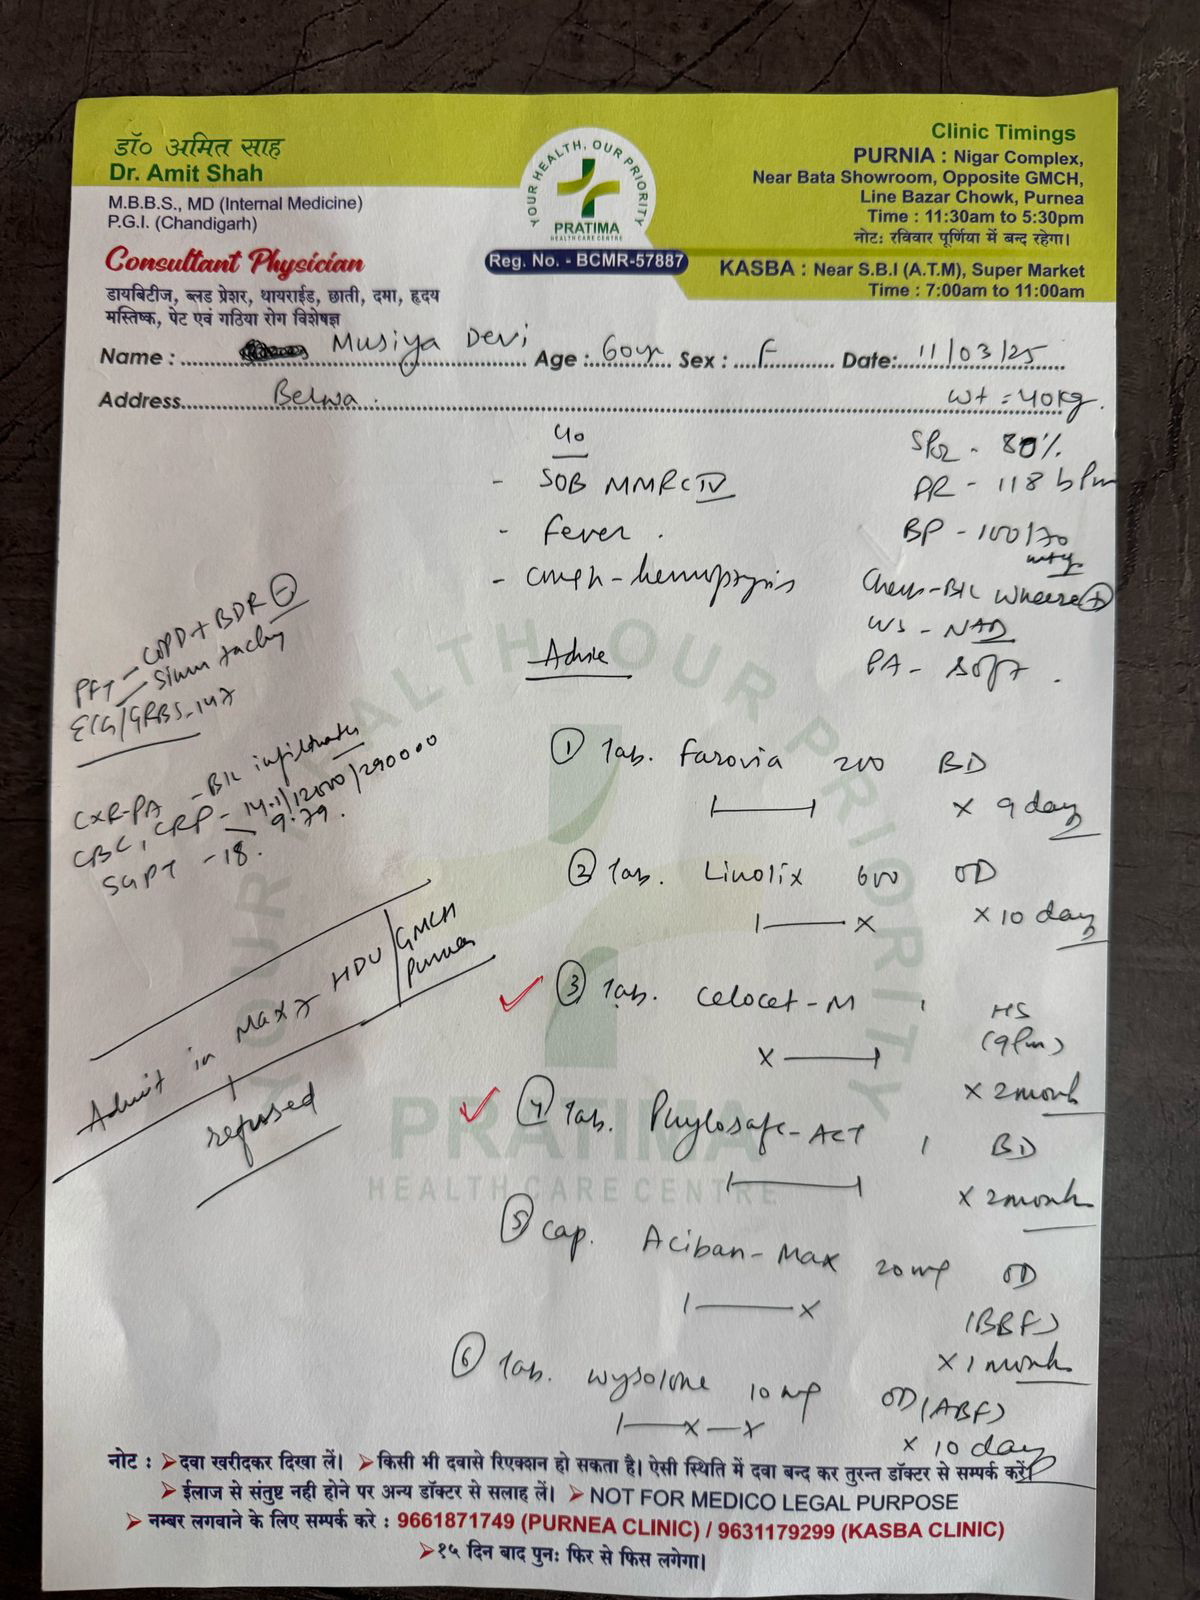 डॉ० अमित साह
Dr. Amit Shah
M.B.B.S., MD (Internal Medicine)
P.G.I. (Chandigarh)
Consultant Physician
डायबिटीज, ब्लड प्रेशर, थायराईड, छाती, दमा, हृदय
मस्तिष्क, पेट एवं गठिया रोग विशेषज्ञ
YOUR HEALTH, OUR PRIORITY
PRATIMA
HEALTH CARE CENTRE
Reg. No. - BCMR-57887
Clinic Timings
PURNIA : Nigar Complex,
Near Bata Showroom, Opposite GMCH,
Line Bazar Chowk, Purnea
Time : 11:30am to 5:30pm
नोट: रविवार पूर्णिया में बन्द रहेगा।
KASBA : Near S.B.I (A.T.M), Super Market
Time : 7:00am to 11:00am
Name : Musiya Devi Age : 60yr Sex : F Date: 11/03/25
Address Belwa. Wt = 40kg.
SPO2 - 80%
PR - 118 bpm
BP - 100/70
Chest - B/L wheeze +
NAD
PA - Soft.
C/o
- SOB MMRC IV
- Fever.
- cough - hemoptysis
PFT - COPD + BDR -
- Sinus tachy
ECG/GRBS - 147
CXR-PA - B/L infiltrates
CBC, CRP - 14.1/12000/290000
9.79.
SGPT - 18.
Admit in Max 7 HDU/GMCH
Purnea
refused
Advise
① Tab. Farovia 200 BD
x 9 day
② Tab. Linolix 600 OD
x 10 day
③ Tab. Celocet-M 1 HS
(9pm)
x 2 month
④ Tab. Phylosafe-ACT 1 BD
x 2 month
⑤ Cap. Aciban-Max 20mg OD
(BBF)
x 1 month
⑥ Tab. Wysolone 10mg OD (ABF)
x 10 day
YOUR HEALTH, OUR PRIORITY
PRATIMA
HEALTH CARE CENTRE
नोट : ➤दवा खरीदकर दिखा लें। ➤किसी भी दवासे रिएक्शन हो सकता है। ऐसी स्थिति में दवा बन्द कर तुरन्त डॉक्टर से सम्पर्क करें।
➤ईलाज से संतुष्ट नही होने पर अन्य डॉक्टर से सलाह लें। ➤NOT FOR MEDICO LEGAL PURPOSE
➤नम्बर लगवाने के लिए सम्पर्क करे : 9661871749 (PURNEA CLINIC) / 9631179299 (KASBA CLINIC)
➤१५ दिन बाद पुनः फिर से फिस लगेगा।